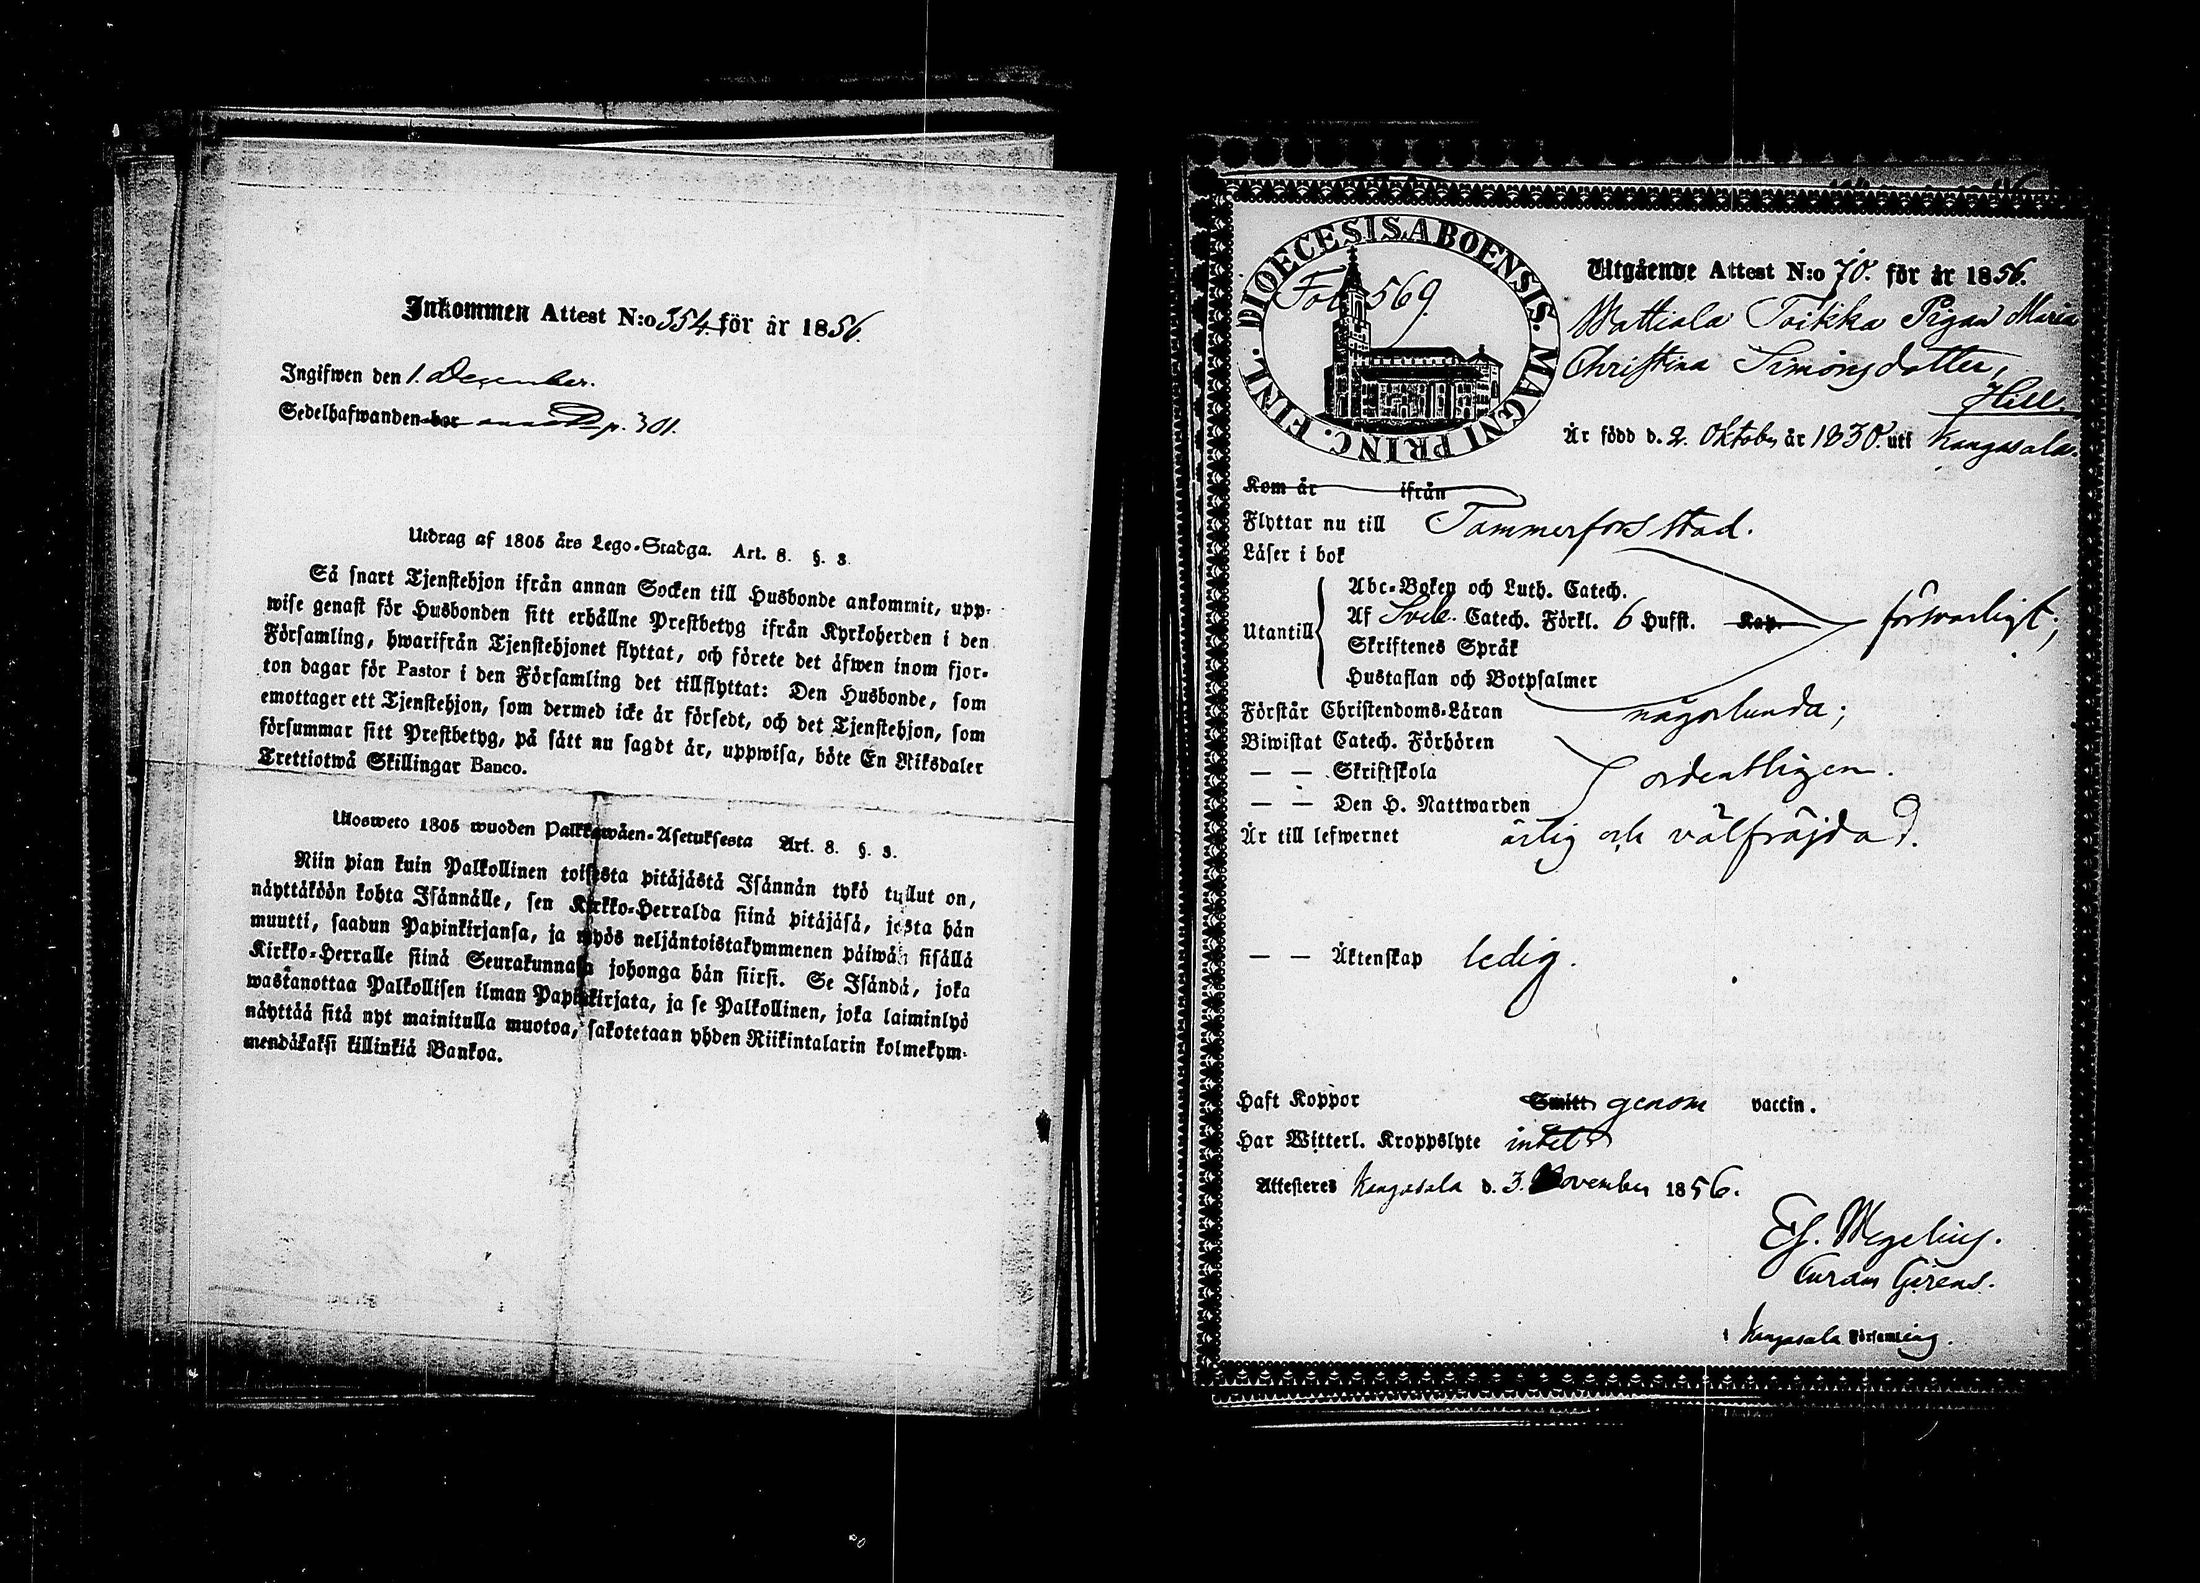 Inkommen Attest N:o 354 för år 1856.
Ingifwen den 1. December.
Sedelhafwanden bor p. 301.
Utdrag af 1805 års Lego-Stadga. Art. 8. §. 3.
Så snart Tjenstehjon ifrån annan Socken till Husbonde ankommit, upp-
wise genast för Husbonden sitt erhållne Prestbetyg ifrån Kyrkoherden i den
Församling, hwarifrån Tjenstehjonet flyttat, och förete det äfwen inom fjor-
ton dagar för Pastor i den Församling det tillflyttat: Den Husbonde, som
emottager ett Tjenstehjon, som dermed icke är försedt, och det Tjenstehjon, som
försummar sitt Prestbetyg, på sätt nu sagdt är, uppwisa, böte En Riksdaler
Trettiotwå Skillingar Banco.
Ulosweto 1805 wuoden Palkkawäen-Asetuksesta Art. 8. §. 3.
Niin pian kuin Palkollinen toisesta pitäjästä Isännän tykö tullut on,
näyttäköön kohta Isännälle, sen Kirkko-Herralda siinä pitäjäsä, josta hän
muutti, saadun Papinkirjansa, ja myös neljäntoistakymmenen päiwän sisällä
Kirkko-Herralle siinä Seurakunnasa johonga hän siirsi. Se Isändä, joka
wastanottaa Palkollisen ilman Papinkirjata, ja se Palkollinen, joka laiminlyö
näyttää sitä nyt mainitulla muotoa, sakotetaan yhden Riikintalarin kolmekym-
mendäkaksi killinkiä Bankoa.
DIOECESIS ABOENSIS. MAGNI PRINC. FINL.
Fol. 569.
Utgående Attest N:o 70. för år 1856.
Wattiala Toikka Pigan Maria
Christina Simonsdotter,
Hill.
Är född d. 2. Oktober år 1830. uti Kangasala.
Kom år ifrån
Flyttar nu till Tammerfors stad.
Läser i bok
Abc-Boken och Luth. Catech.
Utantill Af Sveb. Catech. Förkl. 6 Hufst. Kap. försvarligt;
Skriftenes Språk
Hustaflan och Botpsalmer
Förstår Christendoms-Läran någorlunda;
Biwistat Catech. Förhören
— — Skriftskola ordentligen.
— — Den H. Nattwarden
Är till lefwernet ärlig och välfräjdad.
— — Äktenskap ledig.
Haft Koppor Smitt genom vaccin.
Har Witterl. Kroppslyte intet
Attesteres Kangasala d. 3. November 1856.
Ef. Wegelius.
Curam Gerens.
i Kangasala Församling.